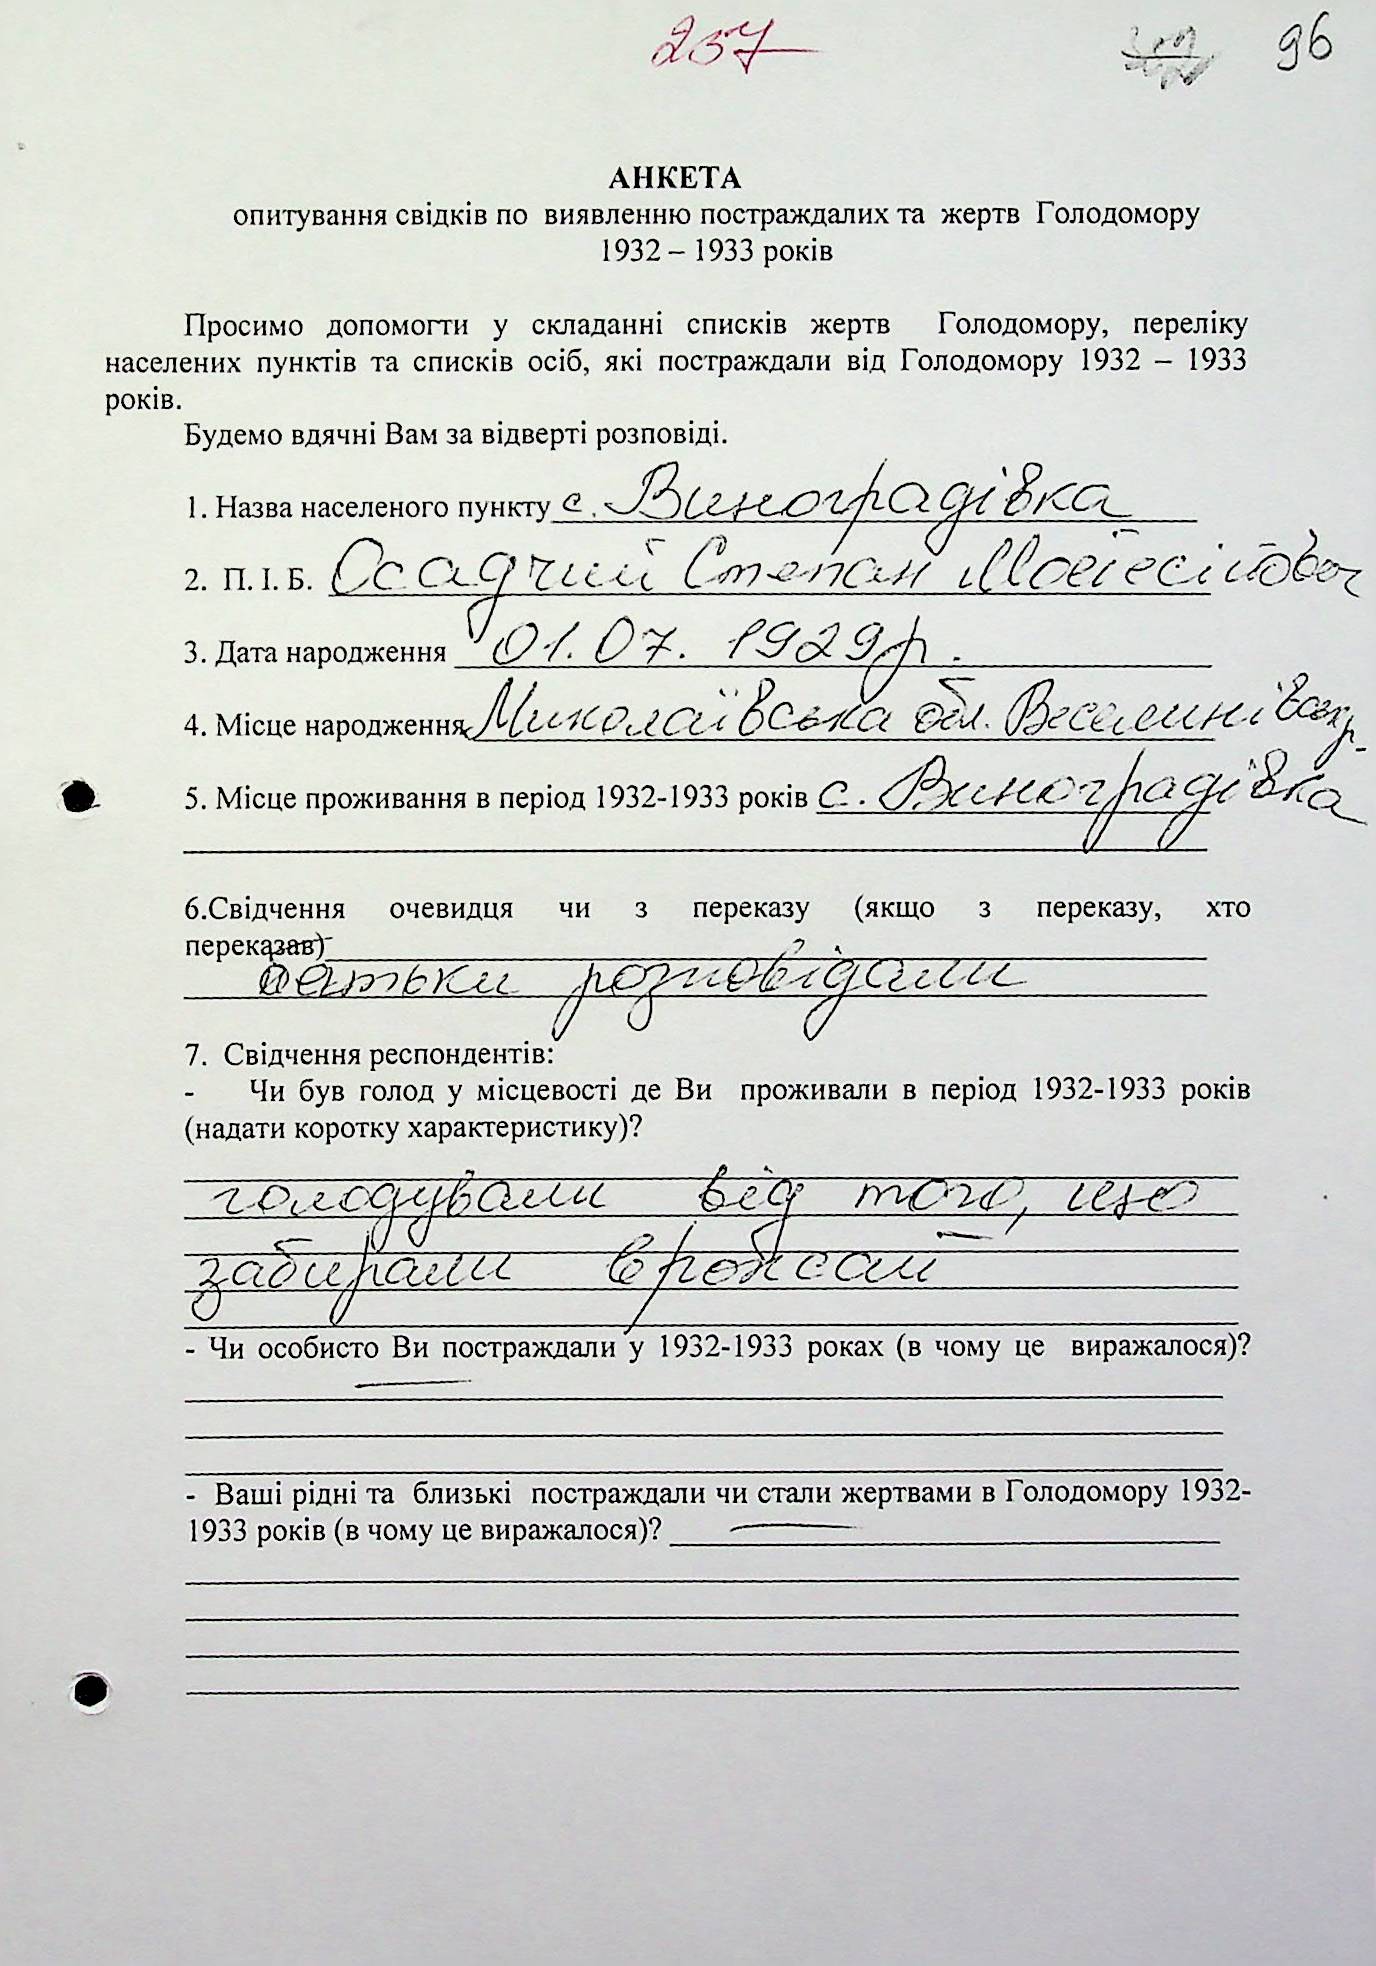 257 96
АНКЕТА
опитування свідків по виявленню постраждалих та жертв Голодомору
1932 – 1933 років
Просимо допомогти у складанні списків жертв Голодомору, переліку
населених пунктів та списків осіб, які постраждали від Голодомору 1932 – 1933
років.
Будемо вдячні Вам за відверті розповіді.
1. Назва населеного пункту с. Виноградівка
2. П. І. Б. Осадчий Степан
3. Дата народження 01.07. 1929 р.
4. Місце народження Миколаївська обл. Веселинівськ р-
5. Місце проживання в період 1932-1933 років с. Виноградівка
6.Свідчення очевидця чи з переказу (якщо з переказу, хто
переказав)
батьки розповідали
7. Свідчення респондентів:
- Чи був голод у місцевості де Ви проживали в період 1932-1933 років
(надати коротку характеристику)?
голодували від того, що
забирали врожай
- Чи особисто Ви постраждали у 1932-1933 роках (в чому це виражалося)?
—
- Ваші рідні та близькі постраждали чи стали жертвами в Голодомору 1932-
1933 років (в чому це виражалося)? —